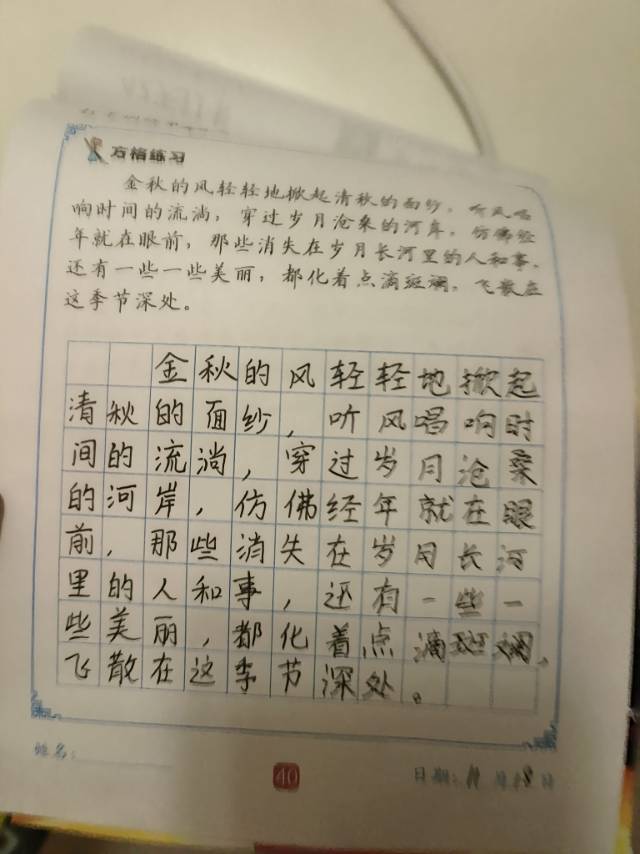 方格练习
金秋的风轻轻地掀起清秋的面纱，听风唱
响时间的流淌，穿过岁月沧桑的河岸，仿佛经
年就在眼前，那些消失在岁月长河里的人和事，
还有一些一些美丽，都化着点滴斑斓，飞散在
这季节深处。
金秋的风轻轻地掀起
清秋的面纱，听风唱响时
间的流淌，穿过岁月沧桑
的河岸，仿佛经年就在眼
前，那些消失在岁月长河
里的人和事，还有一些一
些美丽，都化着点滴斑斓，
飞散在这季节深处。
姓名：
40
日期：11月18日